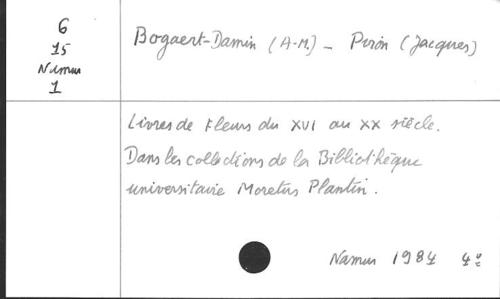 6
15
Namur
1
Bogaert-Damin (A-M.) - Piron (Jacques)
Livres de Fleurs du XVI au XX siècle.
Dans les collections de la Bibliothèque
universitaire Moretus Plantin.
Namur 1984 4º